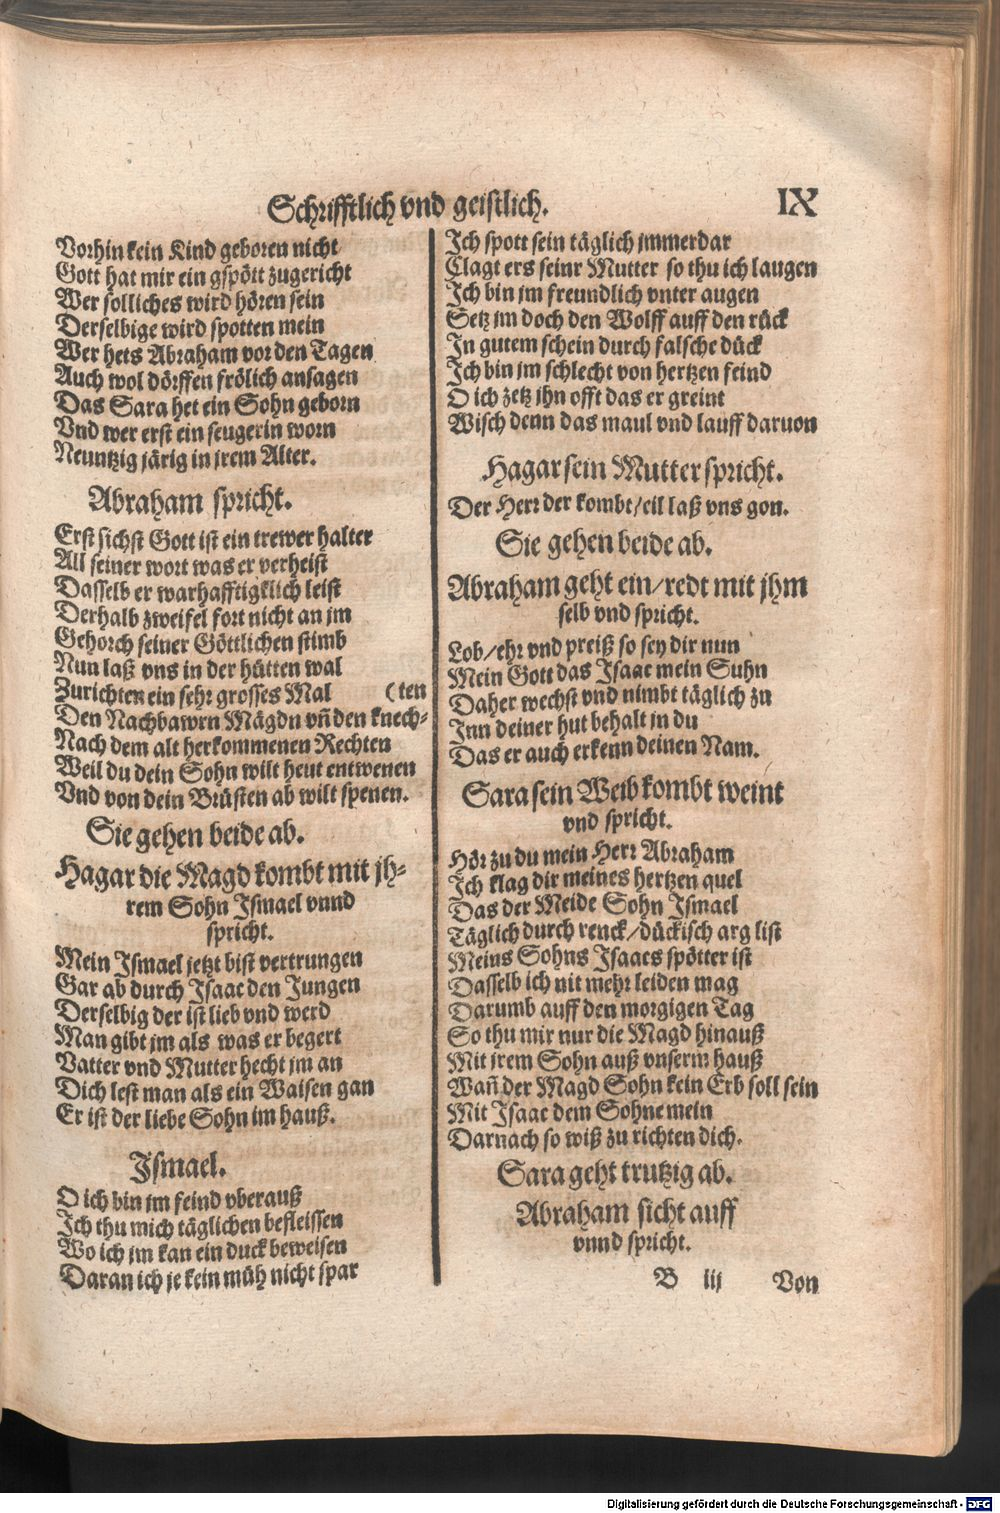 Schrifftlich vnd geistlich.
IX
Vorhin kein Kind geboren nicht
Gott hat mir ein gspött zugericht
Wer solliches wird hören sein
Derselbige wird spotten mein
Wer hets Abraham vor den Tagen
Auch wol dörffen frölich ansagen
Das Sara het ein Sohn geborn
Vnd wer erst ein seugerin worn
Neuntzig järig in jrem Alter.
Abraham spricht.
Erst sichst Gott ist ein trewer halter
All seiner wort was er verheist
Dasselb er warhafftigklich leist
Derhalb zweifel fort nicht an jm
Gehorch seiner Göttlichen stimb
Nun laß vns in der hütten wal
Zurichten ein sehr grosses Mal (ten
Den Nachbawrn Mägdn vn̄ den knech-
Nach dem alt herkommenen Rechten
Weil du dein Sohn wilt heut entwenen
Vnd von dein Brüsten ab wilt spenen.
Sie gehen beide ab.
Hagar die Magd kombt mit jh-
rem Sohn Ismael vnnd
spricht.
Mein Ismael jetzt bist vertrungen
Gar ab durch Isaac den Jungen
Derselbig der ist lieb vnd werd
Man gibt jm als was er begert
Vatter vnd Mutter hecht jm an
Dich lest man als ein Waisen gan
Er ist der liebe Sohn im hauß.
Ismael.
O ich bin jm feind vberauß
Ich thu mich täglichen befleissen
Wo ich jm kan ein duck beweisen
Daran ich je kein müh nicht spar
Ich spott sein täglich jmmerdar
Clagt ers seinr Mutter so thu ich laugen
Ich bin jm freundlich vnter augen
Setz jm doch den Wolff auff den rück
In gutem schein durch falsche dück
Ich bin jm schlecht von hertzen feind
O ich zetz jhn offt das er greint
Wisch denn das maul vnd lauff daruon
Hagar sein Mutter spricht.
Der Herr der kombt/eil laß vns gon.
Sie gehen beide ab.
Abraham geht ein/redt mit jhm
selb vnd spricht.
Lob/ehr vnd preiß so sey dir nun
Mein Gott das Isaac mein Suhn
Daher wechst vnd nimbt täglich zu
Inn deiner hut behalt jn du
Das er auch erkenn deinen Nam.
Sara sein Weib kombt weint
vnd spricht.
Hör zu du mein Herr Abraham
Ich klag dir meines hertzen quel
Das der Meide Sohn Ismael
Täglich durch renck/dückisch arg list
Meins Sohns Isaacs spötter ist
Dasselb ich nit mehr leiden mag
Darumb auff den morgigen Tag
So thu mir nur die Magd hinauß
Mit jrem Sohn auß vnserm hauß
Wan̄ der Magd Sohn kein Erb soll sein
Mit Isaac dem Sohne mein
Darnach so wiß zu richten dich.
Sara geht trutzig ab.
Abraham sicht auff
vnnd spricht.
B iij Von
Digitalisierung gefördert durch die Deutsche Forschungsgemeinschaft - DFG